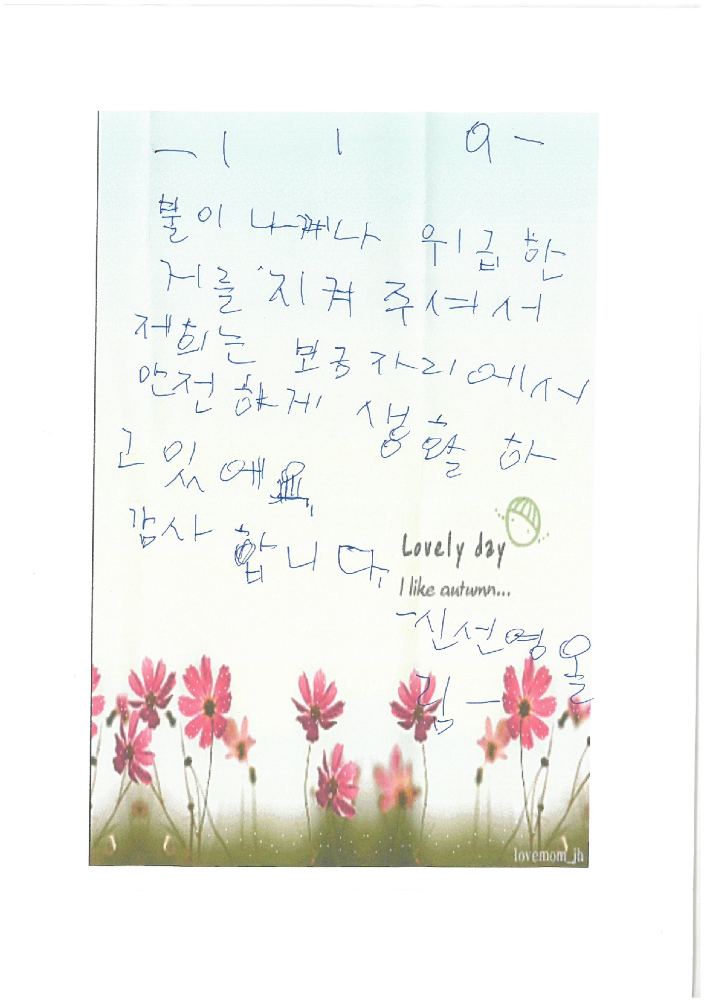 - 1 1 9 -
불이 위급한
저를 지켜 주셔서
저희는 보궁자리에서
안전하게 생활하
고 있에요,
감사 합니다,
Lovely day
I like autumn...
-신선영올
림-
lovemom_jh